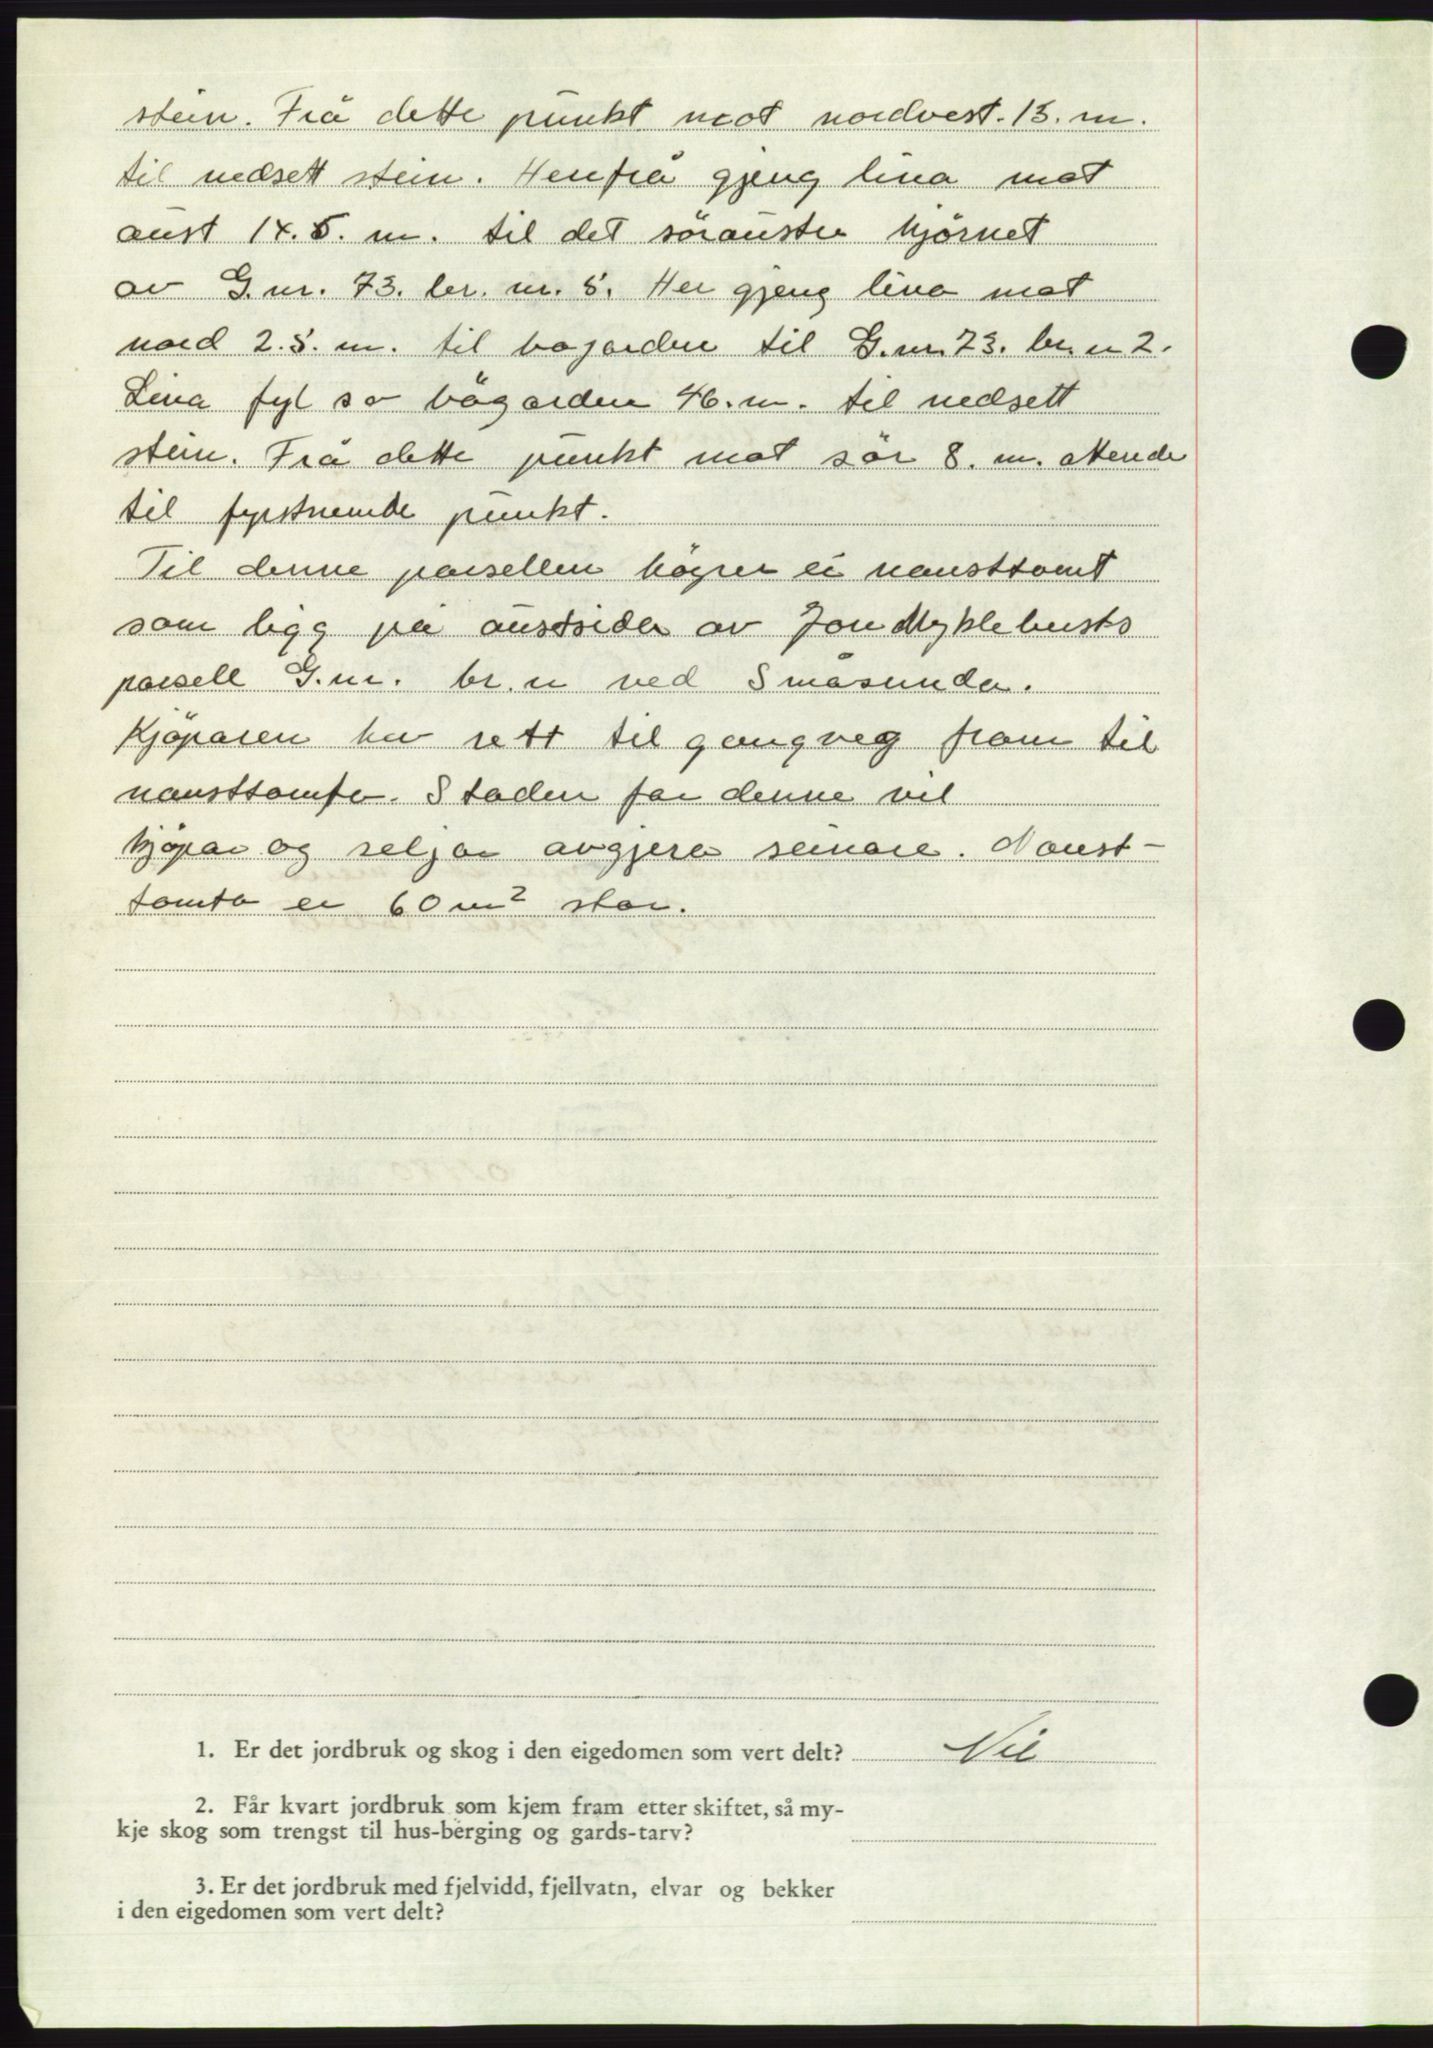 stein. Frå dette punkt mot nordvest. 13. m.
til nedsett stein. Herifrå gjeng lina mot
aust 14.5. m. til det söraustre hjörnet
av G.nr. 73. br. nr. 5. Her gjeng lina mot
nord 2.5. m. til bøgarden til G.nr. 73. br. n 2.
Lina fyl so bögarden 46. m. til nedsett
stein. Frå dette punkt mot sör 8. m. attende
til fyrstnemde punkt.
Til denne parsellen höyrer ei nausttomt
som ligg på austsida av Jon Myklebusts
parsell G.nr. br. n ved Småsunda.
Kjöparen har rett til gangveg fram til
nausttomta. Staden for denne vil
kjöpar og seljar avgjera seinare. Naust-
tomta er 60 m² stor.
1. Er det jordbruk og skog i den eigedomen som vert delt? Nil
2. Får kvart jordbruk som kjem fram etter skiftet, så my-
kje skog som trengst til hus-berging og gards-tarv?
3. Er det jordbruk med fjelvidd, fjellvatn, elvar og bekker
i den eigedomen som vert delt?